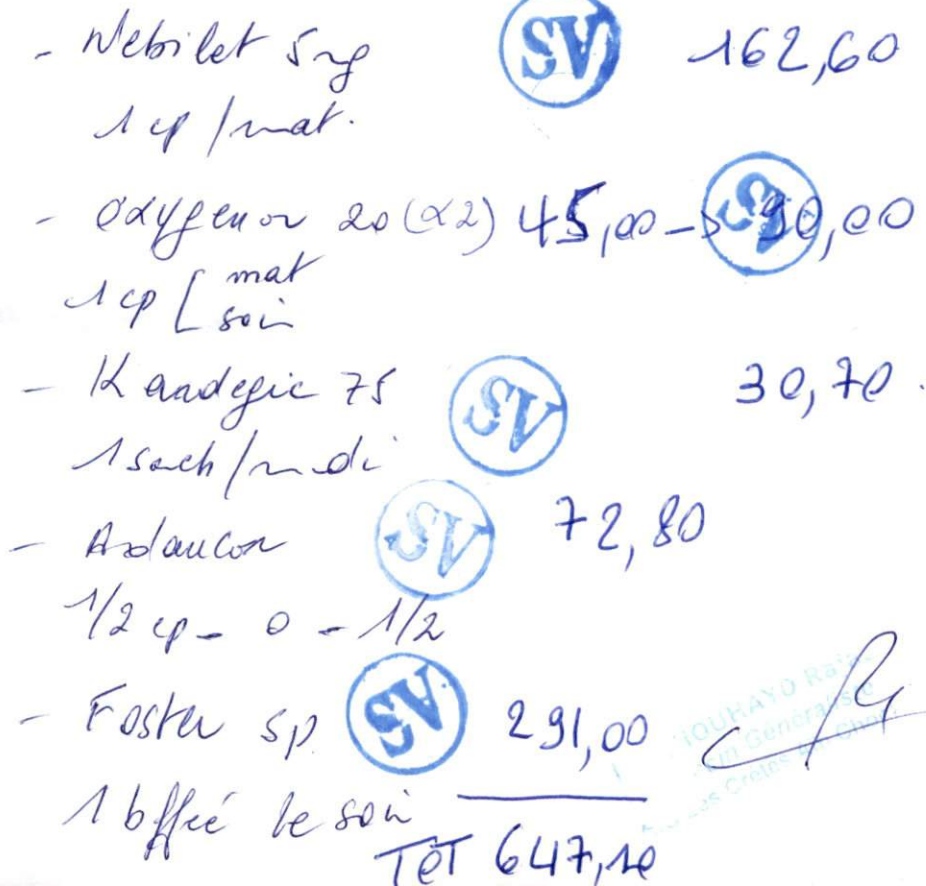 - Nebilet 5mg SV 162,60
1 cp / mat.
- Oxygenor 20 (x2) 45,00 -> SV 90,00
1 cp [ mat
soir
- Kardegic 75 SV 30,70.
1 sach / midi
- Aldaucor SV 72,80
1/2 cp - 0 - 1/2
- Foster sp SV 291,00
1 bffée le soir
TOT 647,10
Généraliste